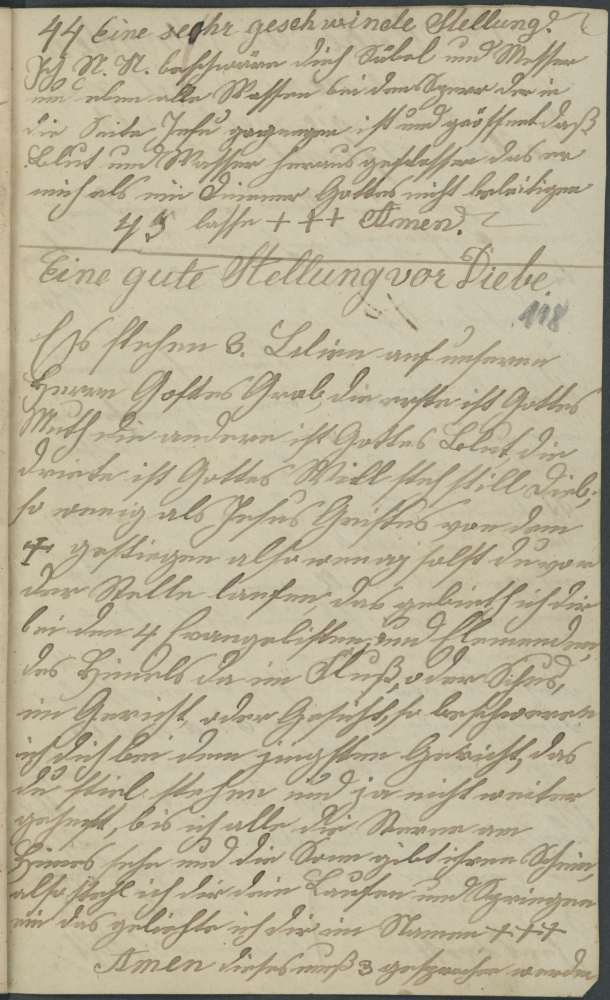 44 Eine sehr geschwinde Stellung.
Ich N. N. beschwöre dich Säbel und Messer
eben alle Waffen bei den Speer der in
die Seite Jesu gegangen ist und geöffnet daß
Blut und Wasser heraus geflossen das er
mich als ein Diener Gottes nicht beleidigen
45 lasse + + + Amen.
Eine gute Stellung vor Diebe
118
Es stehen 3. Lilien auf unseren
Herrn Gottes Grab, die erste ist Gottes
Muth die andere ist Gottes Blut, die
driete ist Gottes Will steh still Dieb,
so wenig als Jesus Cristus von dem
+ gestiegen also wenig solst du von
der Stelle laufen, das gebieth ich dir
bei den 4 Evangelisten und Elementen
des Himels da im Fluß, oder Schus,
im Gericht oder Gesicht, so beschwere
ich dich bei dem jingsten Gericht, das
du stiel stehen und ja nicht weiter
gehest, bis ich alle die Sterne am
Himel sehe und die Sonn gibt ihren Schein,
also stehl ich dir dein Laufen und Springen
das gebiethe ich dir im Namen +++
Amen dieses muß 3 gesprochen werden